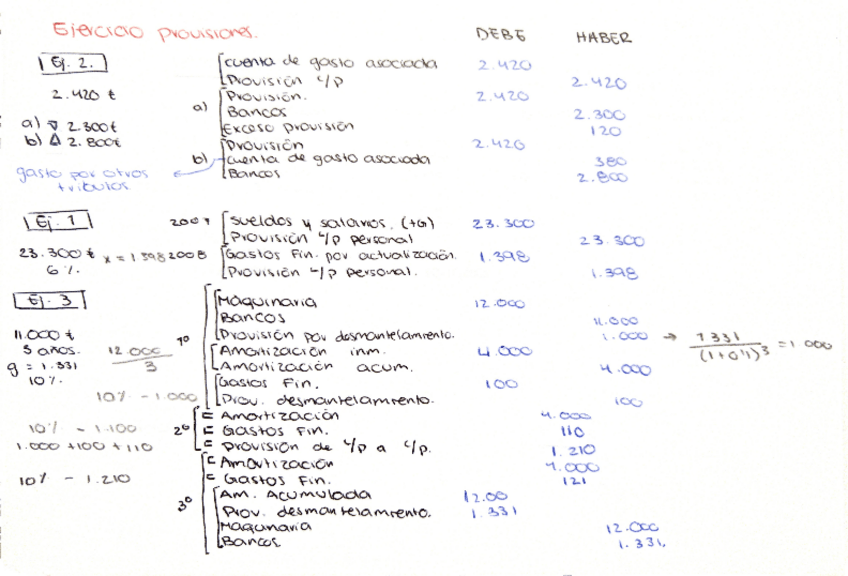 Ejercicio provisiones. DEBE HABER
Ej. 2. cuenta de gasto asociada 2.420
Provisión c/p 2.420
2.420 € Provisión. 2.420
a) Bancos 2.300
a) ▽ 2.300€ Exceso provisión 120
b) Δ 2.800€ Provisión 2.420
b) cuenta de gasto asociada 380
gasto por otros tributos Bancos 2.800
Ej. 1 Sueldos y salarios. (+G) 23.300
Provisión l/p personal 23.300
23.300 € x = 1398 2008 Gastos Fin. por actualización. 1.398
6%. Provisión l/p personal. 1.398
Ej. 3 Maquinaria 12.000
Bancos 11.000
11.000 € 1º Provisión por desmantelamiento. 1.000 → 1331 / (1+0'1)³ = 1000
5 años. 12.000 / 3 Amortización inm. 4.000
g = 1.331 Amortización acum. 4.000
10%. Gastos Fin. 100
10% - 1.000 Prov. desmantelamiento. 100
= Amortización 4.000
10% - 1.100 2º = Gastos Fin. 110
1.000 + 100 + 110 = Provisión de l/p a c/p. 1.210
= Amortización 4.000
10% - 1.210 = Gastos Fin. 121
3º Am. Acumulada 12.00
Prov. desmantelamiento. 1.331
Maquinaria 12.000
Bancos 1.331.